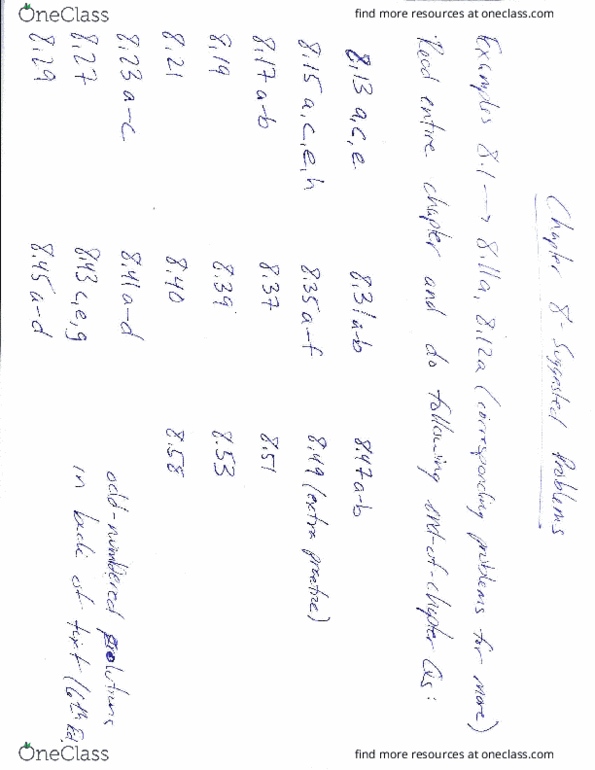 OneClass
find more resources at oneclass.com
Chapter 8 - Suggested Problems
Examples 8.1 → 8.11a, 8.12a (corresponding problems for more)
Read entire chapter and do following end-of-chapter Qs:
8.13 a,c,e. 8.31a-b 8.47a-b
8.15 a,c,e,h 8.35a-f 8.49 (extra practice)
8.17 a-b 8.37 8.51
8.19 8.39 8.53
8.21 8.40 8.58
8.23 a-c 8.41 a-d
8.27 8.43 c,e,g
8.29 8.45 a-d
odd-numbered solutions
in back of text (6th Ed.
OneClass
find more resources at oneclass.com